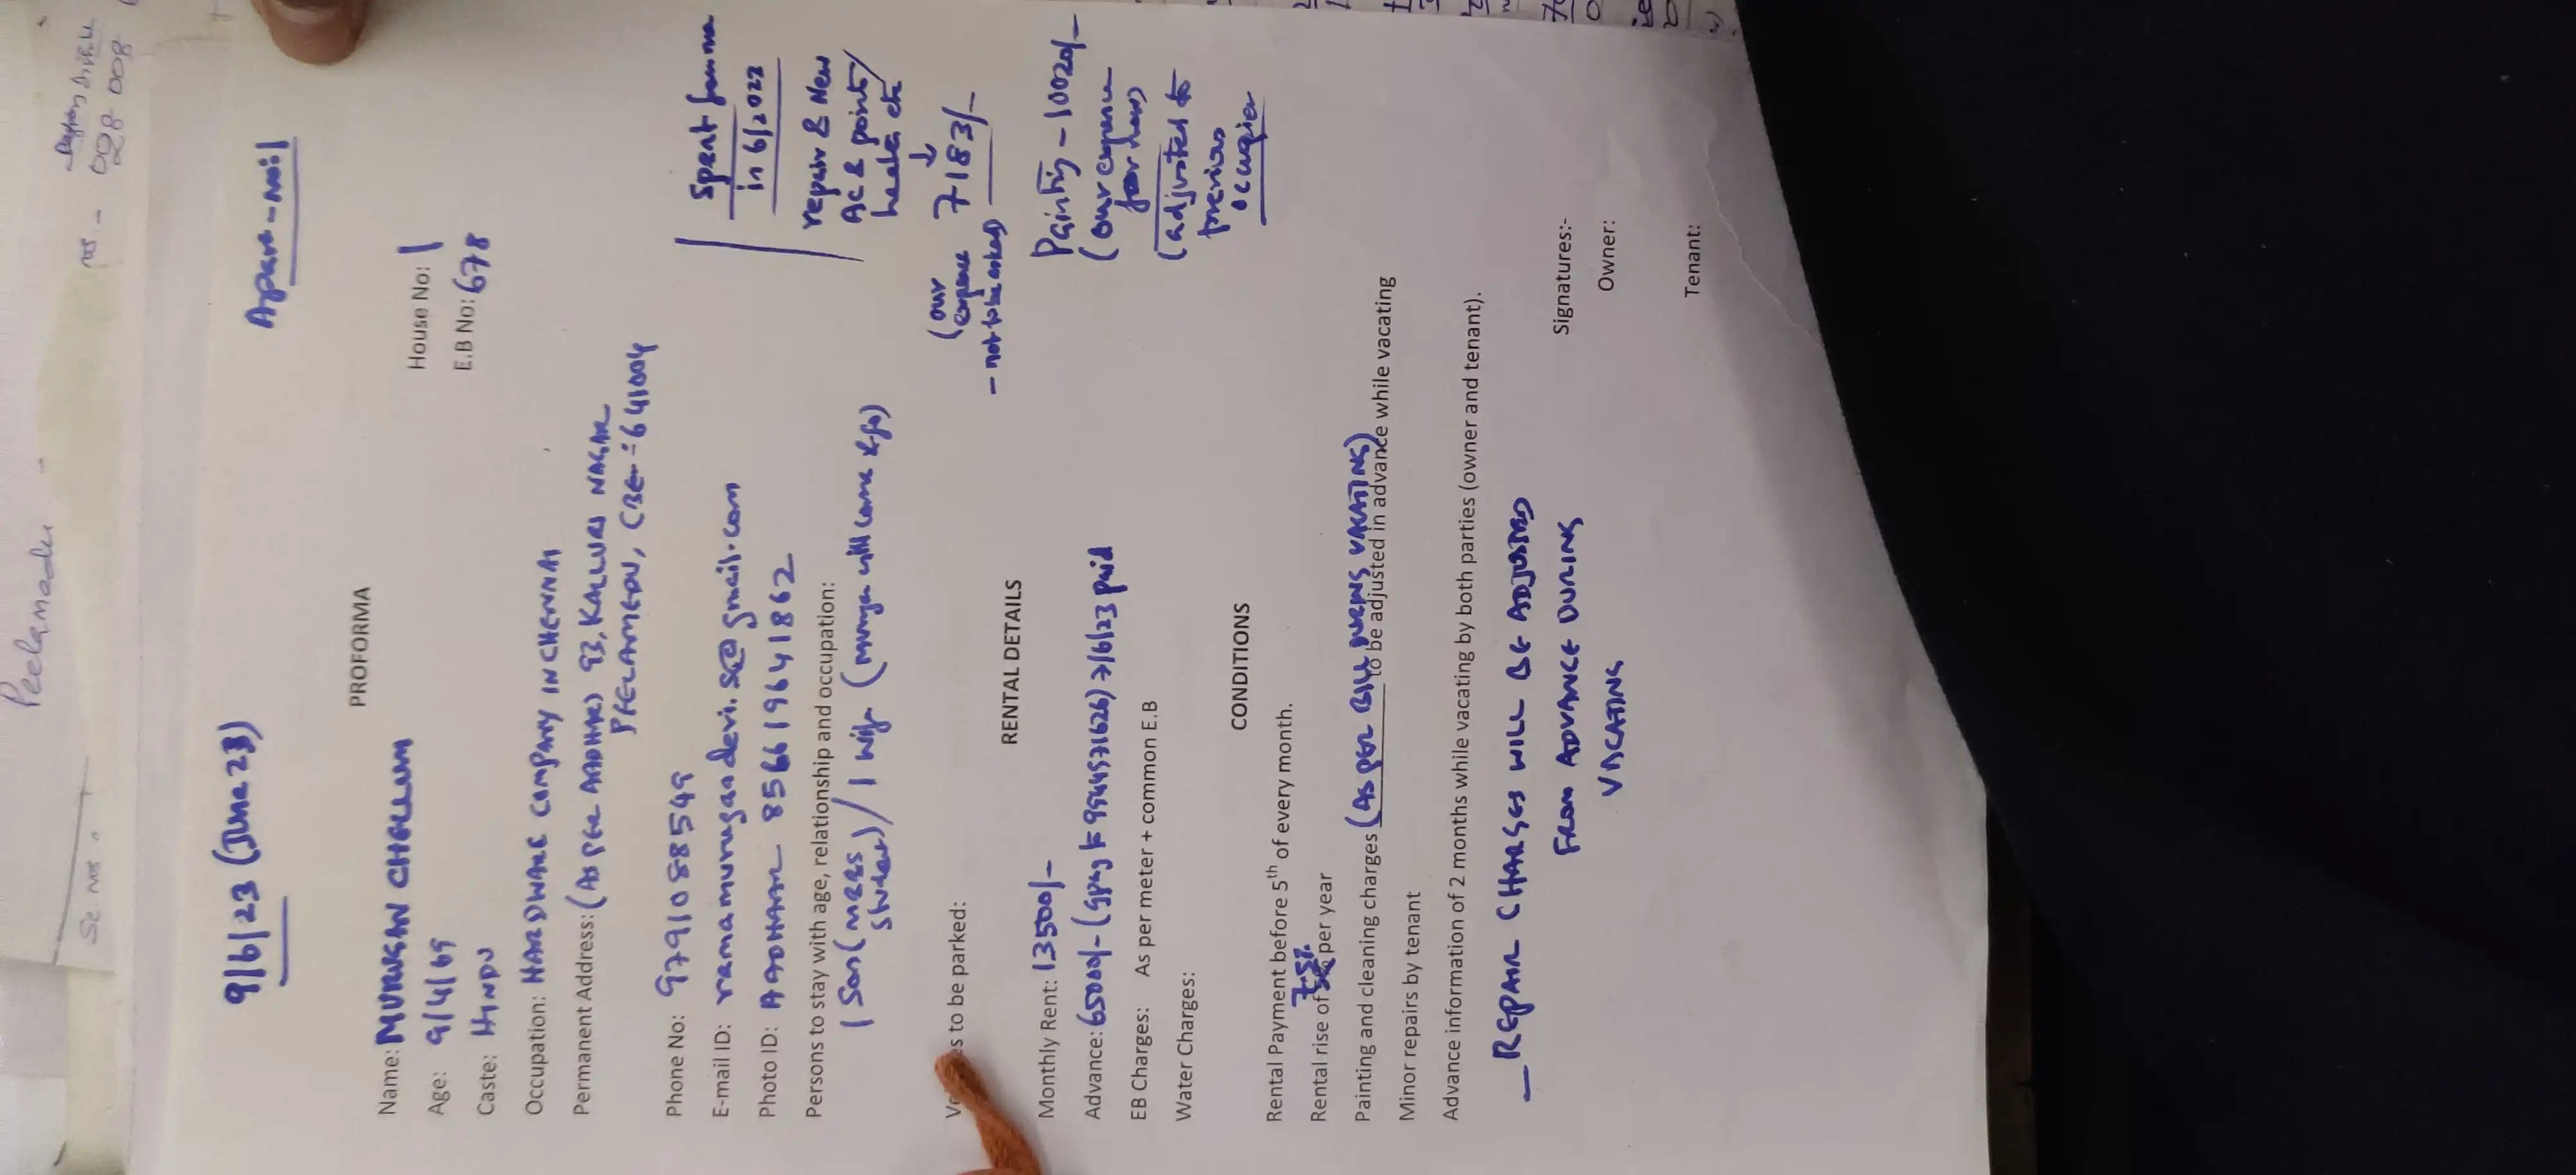 Peelamedu
Sc. nos.
nos. -
028 008
9/6/23 (June 23)
PROFORMA
Name: MURUGAN CHELLUM
House No: 1
Age: 9/4/69
E.B No: 678
Caste: HINDU
Occupation: HARDWARE COMPANY IN CHENNAI
Permanent Address: (AS PER AADHAR) 93, KALLURI NAGAR
PEELAMEDU, CBE-641004
Phone No: 9791088549
E-mail ID:
Photo ID: AADHAAR 856619641862
Persons to stay with age, relationship and occupation:
1 Son (MBBS / 1 Wife (Murugan will come & go)
Student)
Spent from me
in 6/2022
repair & New
AC & points/
heater etc
↓
(our 7183/-
expense
- not to be asked)
Painting - 10020/-
(our expense
(adjusted to
previous
occupier
s to be parked:
RENTAL DETAILS
Monthly Rent: 13500/-
Advance: 65000/- (gpay to 9944571626) 7/6/23 paid
EB Charges: As per meter + common E.B
Water Charges:
CONDITIONS
Rental Payment before 5th of every month.
7.5%
Rental rise of 5% per year
Painting and cleaning charges (AS PER BILL DURING VACATING) to be adjusted in advance while vacating
Minor repairs by tenant
Advance information of 2 months while vacating by both parties (owner and tenant).
— REPAIR CHARGES WILL BE ADJUSTED
FROM ADVANCE DURING
VACATING
Signatures:-
Owner:
Tenant: